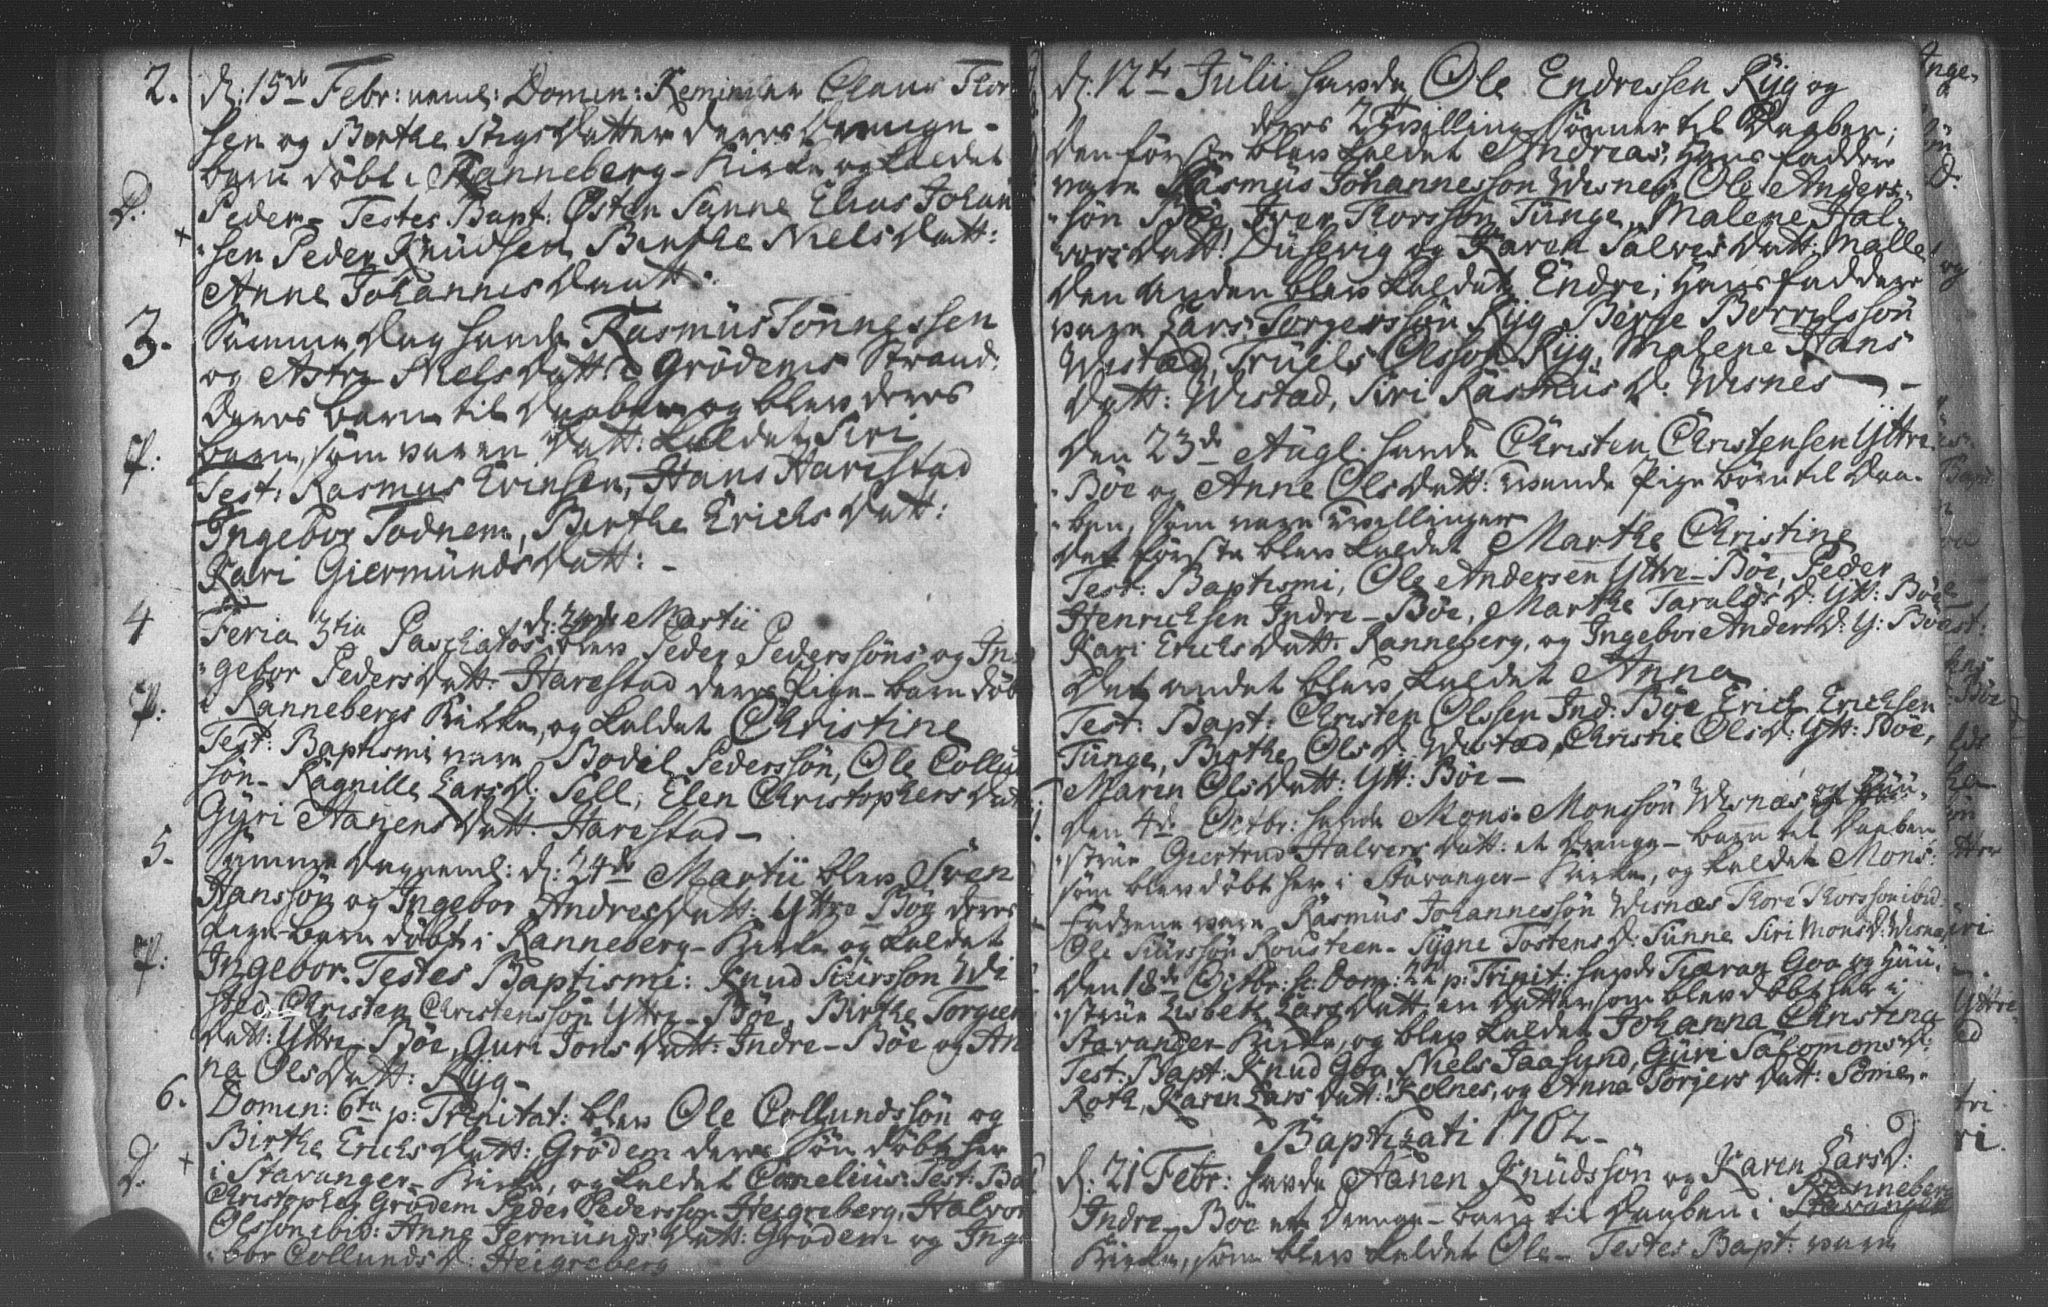 2. d: 15de Febr: neml: Domin: Reminiscer Claus Thor
sen og Berthe StigsDatter deres Drenge-
barn döbt i Ranneberg-Kirke og kaldet
D. Peder- Testes Bapt: Östen Sanne Elias Johan
sen Peder Knudsen Birthe NielsDatt:
Anne JohannisDaatt:
3. Samme Dag havde Rasmüs Tönnessen
og Astri NielsDatt: Grödems Strand
deres barn til Daaben og blev deres
P. barn, som var en Datt: kaldet Siri
Test: Rasmus Evensen, Hans Harestad
Ingebor Todnem, Birthe ErichsDatt:
Kari GiermündsDatt: -
4 Feria 3tia Paschatos d: 24de Martii blev Peder Pederssöns og In-
gebor PedersDatt: Harestad deres Pige-barn döbt
P. i Rannebergs Kirke, og kaldet Christine
Test: Baptismi vare, Bodil Pederssön, Ole Collun
sön- Ragnille LarsD: Sell, Elen ChristophersDatt:
Gyri HanensDatt: Harestad-
5. Samme Dag neml: d: 24de Martii blev Sven
Hanssön og Ingebor AndresDatt: Yttre Böe deres
Pige-barn döbt i Ranneberg-Kirke og kaldet
P. Ingebor. Testes Baptismi: Knud Siurssön Wi
stad Christen Christenssön Yttre-Böe, Birthe Torgiers
Datt: Yttre-Böe, Guri JonsDatt: Indre-Böe og An
na OlsDatt: Ryg-
6. Domin: 6ta p: Trinitat: blev Ole Collundssön og
Birthe ErichsDatt: Grödem deres sön döbt her
D. i Stavanger-Kirke, og kaldet Cornelius: Test: Bap
Christopher Grödem Peder Pederssön Heigreberg, Halvor
Olsson ibid: Anne JermündsDatt: Grödem og Inge
bor CollundsD: Heigreberg
d: 12te Julii havde Ole Endressen Ryg og
deres 2 Tvilling sönner til Daaben;
den förste blev kaldet Andreas; Hans faddere
vare Rasmus Johannesson Wisnes, Ole Anders-
sön Böe, Iver Thorssön Tunge, Malene Hal-
vorsDatt: Dusevig og Karen SalvesDatt: Malle
Den anden blev kaldet Endre; Hans faddere
vare Lars Torgerssön Ryg, Berge Borrelssön
Wistad, Truels Olssön Ryg, Malene Hans
Datt: Wistad, Siri RasmusD: Wisnes-
Den 23de Augl. havde Christen Christensen Yttre
Böe og Anne OlsDatt: tvende Pige börn til Daa-
ben, som vare Tvillinger
det förste blev kaldet Marthe Christine
Test: Baptismi, Ole Andersen Yttre-Böe, Peder
Henrichsen Indre-Böe, Marthe TaraldsD: Ytt: Böe
Kari ErichsDatt: Ranneberg, og Ingebor AndersD: Y: Böe
Det andet blev kaldet Anna
Test: Bapt: Christen Olssen Ind: Böe Erich Erichsen
Tunge, Birthe OlsD: Wistad, Christie OlsD: Ytt: Böe,
Maren OlsDatt: Ytt: Böe-
Den 4de Octbr: havde Mons Monssön Wisnæs og Huu-
strue Giertrud HalversDatt: et Drenge-barn til Daaben
som blev döbt her i Stavanger-Kirke, og kaldet Mons:
Fadrene vare Rasmus Johannessön Wisnæs Thore Thorssön ibid
Ole Siurssön Rousteen- Sygne TostensD: Sunne Siri MonsD: Wisnæs
Den 18de Octbr: s: Dom: 22 p: Trinit: havde Tiæran Goa og Huu-
strue Lisbet LarsDatt: en Datter, som blev döbt her i
Stavanger-Kirke, og blev kaldet Johanna Christina
Test: Bapt: Knud Goa Niels Faasund, Guri SalomonsD:
Roth, Karen LarsDatt: Rolnes, og Anna TorjersDatt: Some-
Baptizati 1762-
d: 21 Febr: havde Hanen Knudssön og Karen LarsD:
Indre-Böe et Drenge-barn til Daaben i Ranneberg
Kirke, som blev kaldet Ole- Testes Bapt: vare